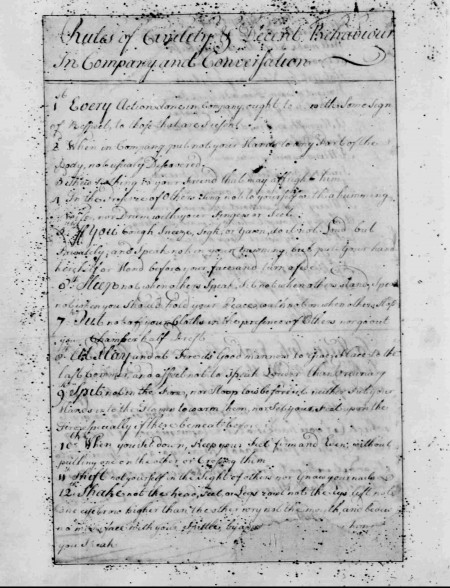 Rules of Civility & Decent Behaviour
In Company and Conversation
1st Every Action done in Company ought to be with Some Sign
of Respect, to those that are Present.
2d When in Company, put not your Hands to any Part of the
Body, not usualy Discovered.
3d Shew Nothing to your Freind that may affright him
4 In the Presence of Others Sing not to yourself with a humming
Noise, nor Drum with your Fingers or Feet.
5th If You Cough, Sneeze, Sigh, or Yawn, do it not Loud but
Privately; and Speak not in your Yawning, but put Your hand
before your face and turn aside
6th Sleep not when others Speak, Sit not when others stand, Speak
not when you Should hold your Peace, walk not on when others Stop
7th Put not off your Cloths in the presence of Others, nor go out
your Chamber half Drest
8th At Play and at Fire its Good manners to Give Place to the
last Commer, and affect not to Speak Louder than ordinary
9th Spit not in the Fire, nor Stoop low before it neither Put your
Hands into the Flames to warm them, nor Set your Feet upon the
Fire especially if there be meat before it
10th When you Sit down, Keep your Feet firm and Even, without
putting one on the other or Crossing them
11th Shift not yourself in the Sight of others nor Gnaw your nails
12th Shake not the head, Feet, or Legs rowl not the Eys lift not
one eyebrow higher than the other wry not the mouth, and bedew
no mans face with your Spittle, by
you Speak